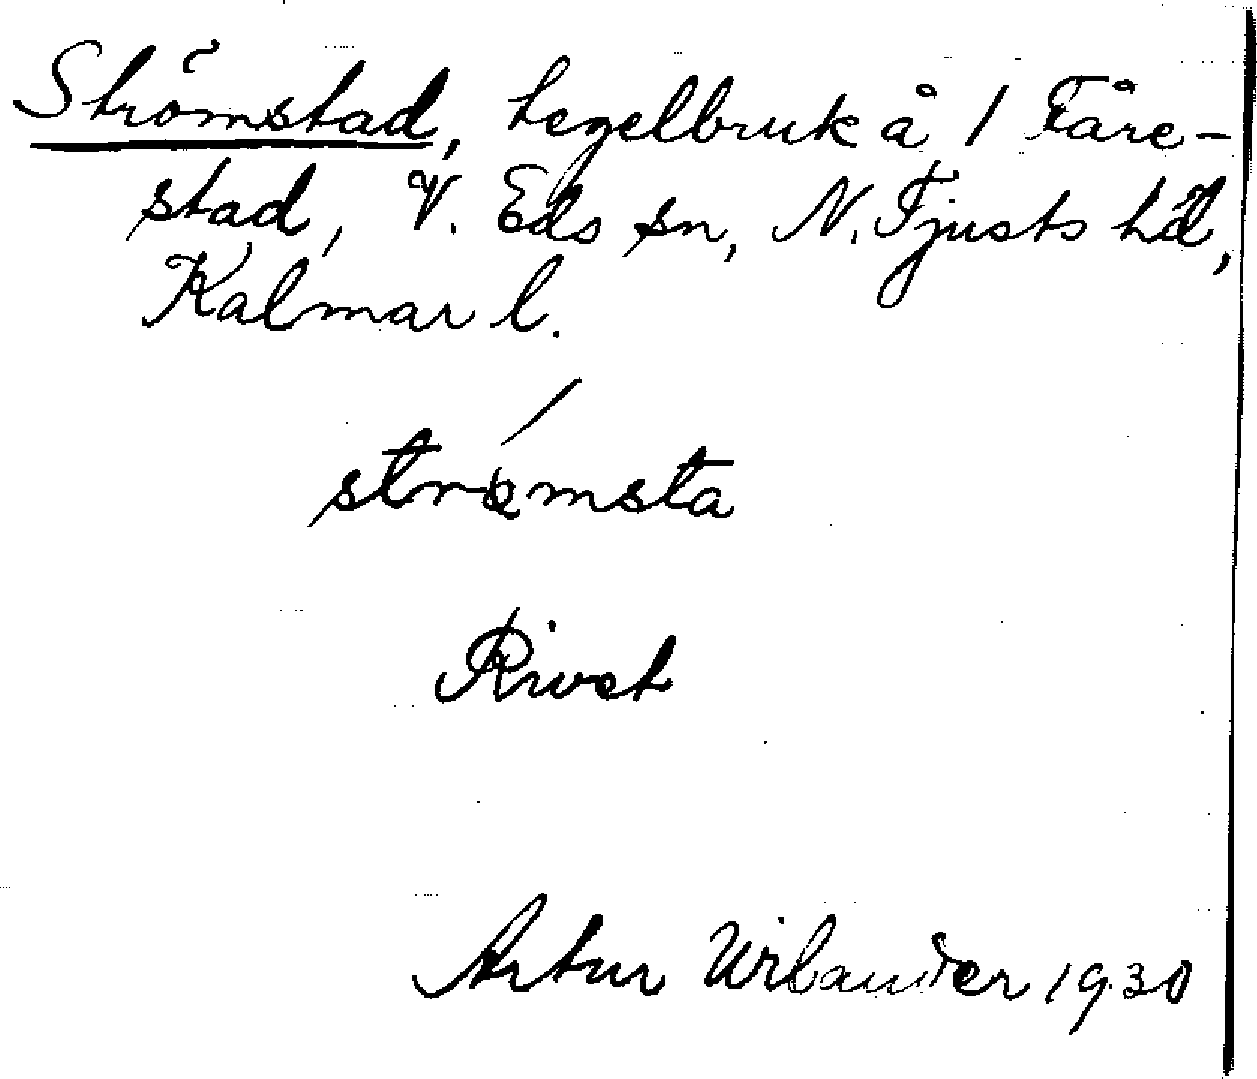 Strömstad, tegelbruk å 1 Fåre-
stad, V. Eds sn, N. Tjusts hd,
Kalmar l.
strömsta
Rivet
Artur Wilander 1930